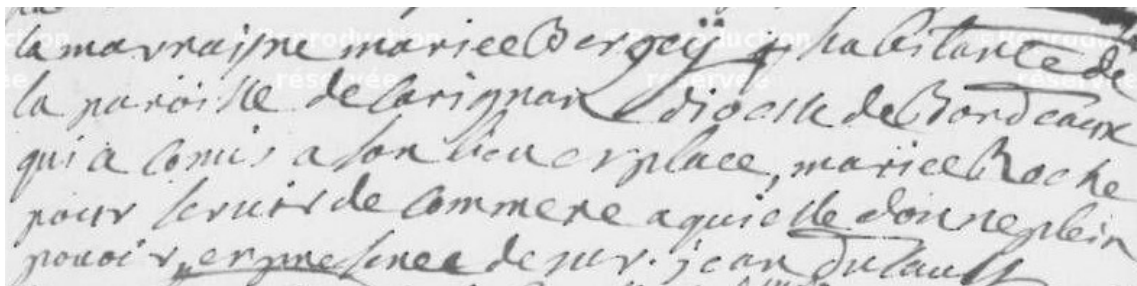 la marraisne mariee Bergeÿ habitante de
la paroisse de Carignan diocese de Bordeaux
qui a comis a son lieu et place, mariee Roche
pour servir de commere a qui elle donne plein
pouvoir, en presence de sieur jean